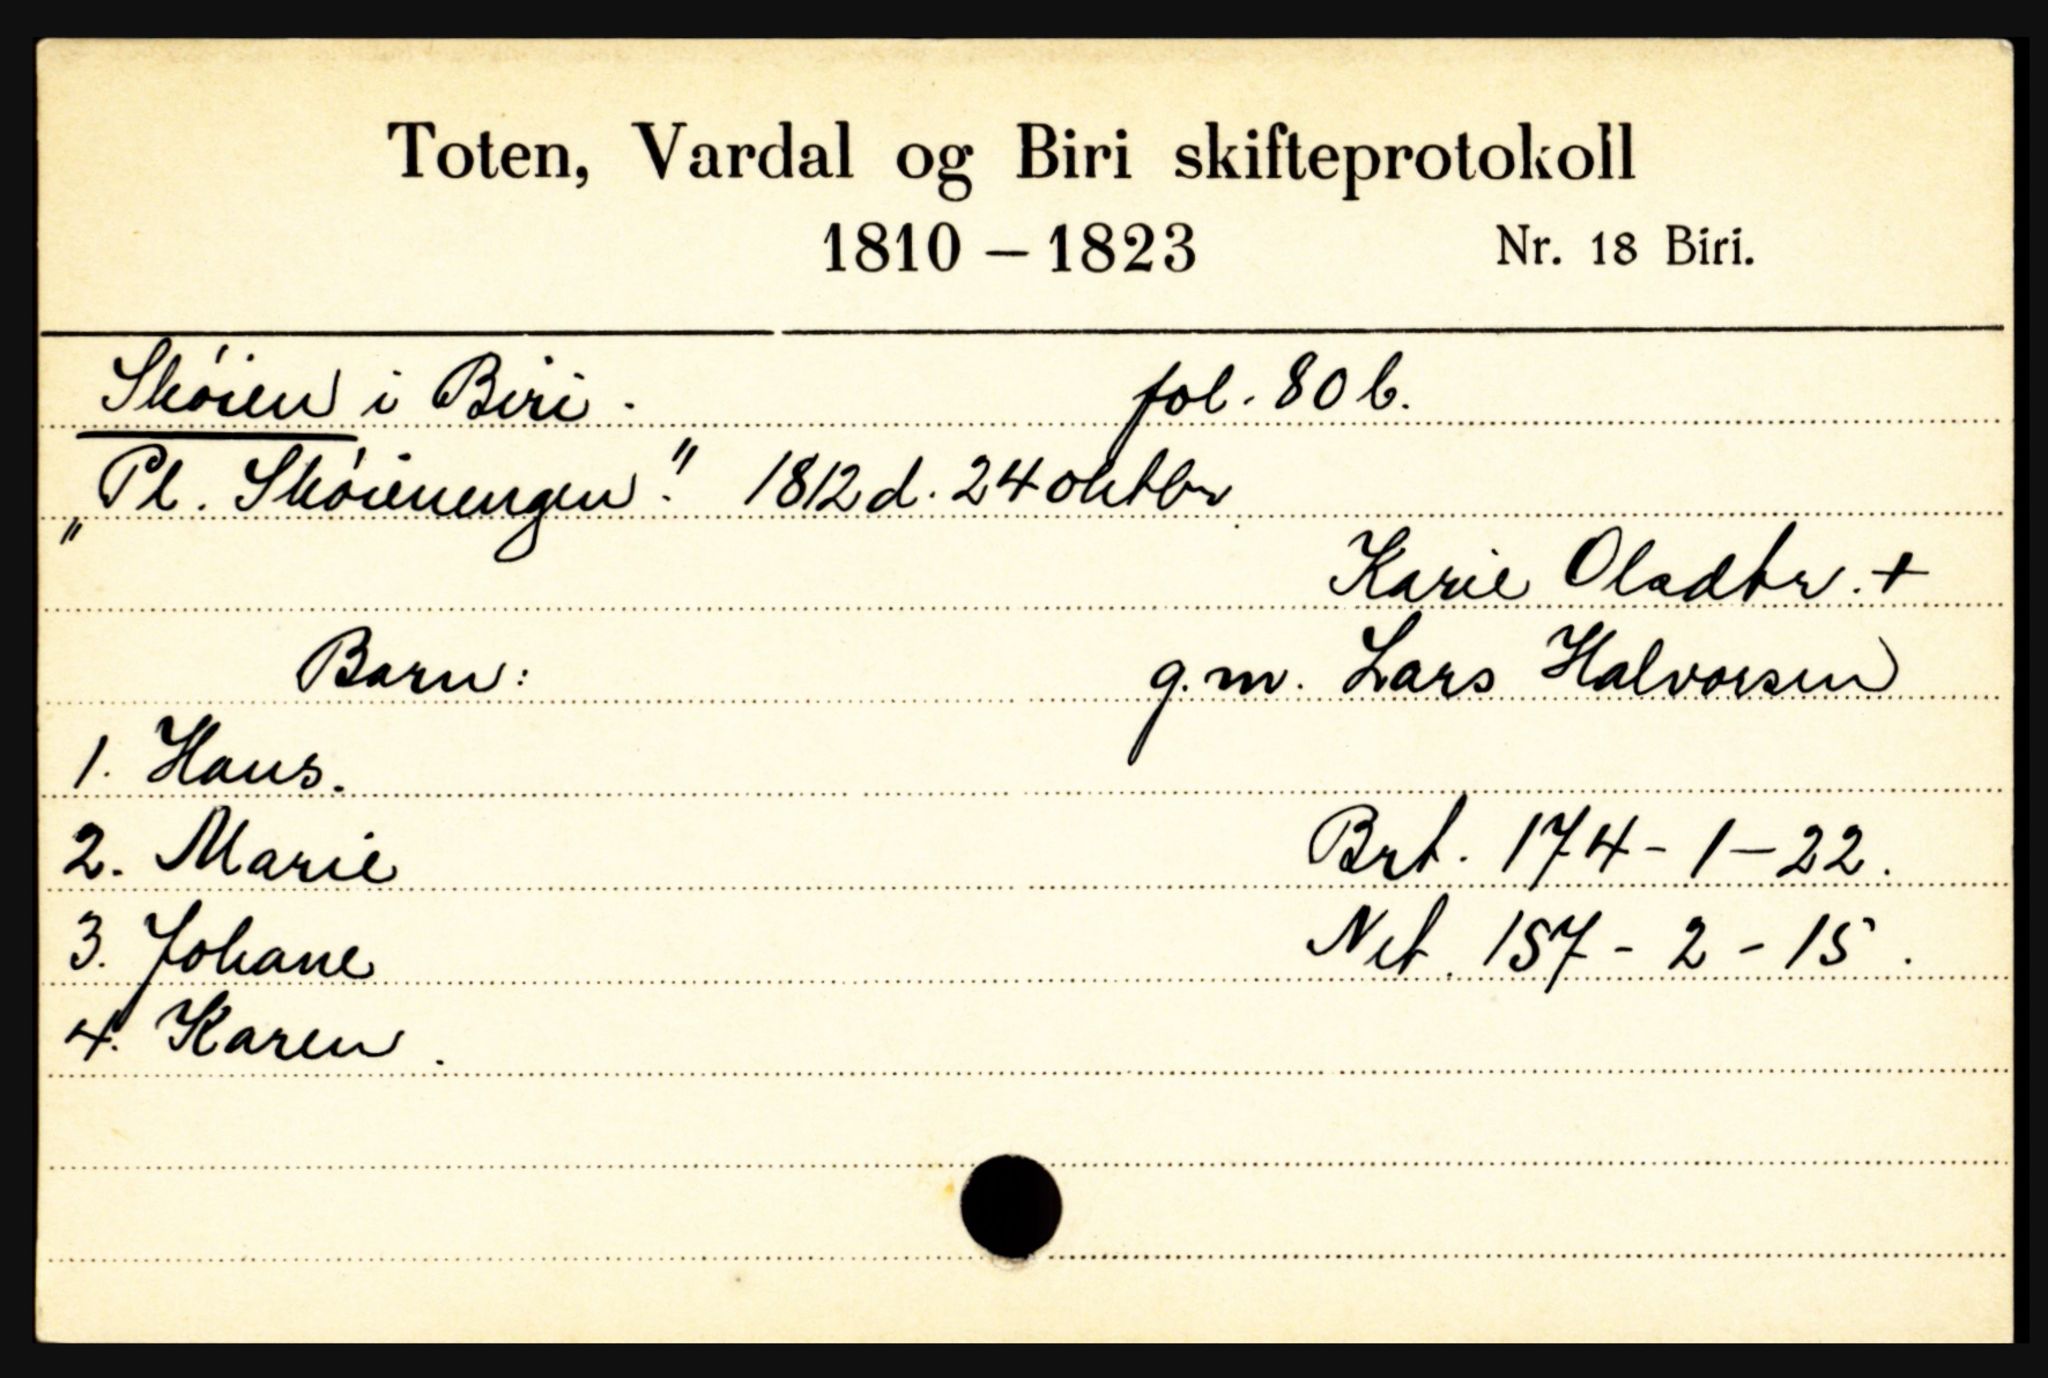 Toten, Vardal og Biri skifteprotokoll
1810 – 1823 Nr. 18 Biri.
Skóien i Biri. fol. 80 b.
„Pl. Skóienengen." 1812 d. 24 oktbr
Karie Olsdtr. +
Barn: g.m. Lars Halvorsen
1. Hans.
2. Marie Brt. 174 - 1 - 22.
3. Johane Net. 157 - 2 - 15.
4. Karen.